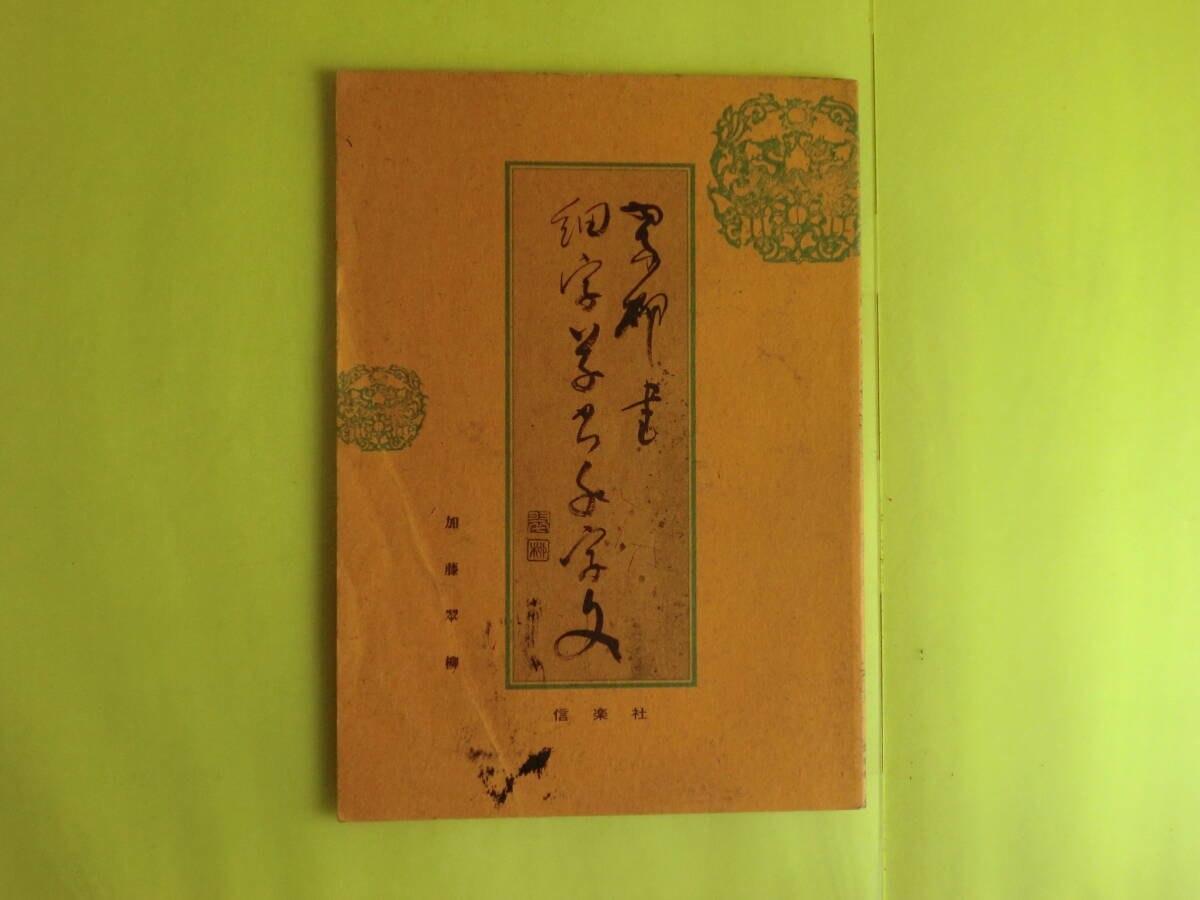 翠柳書
細字草書千字文
加藤翠柳
信楽社